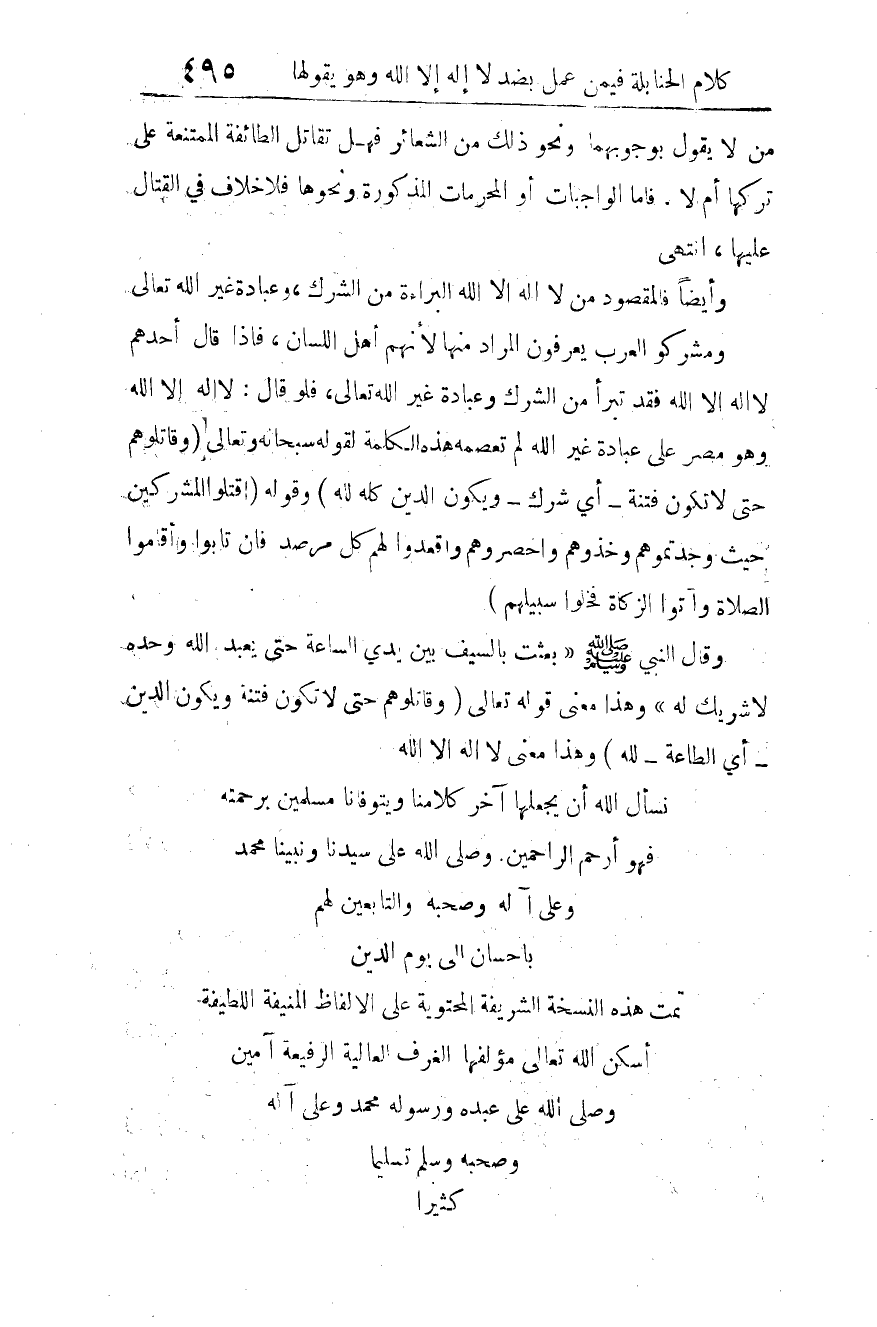 كلام الحنابلة فيمن عمل بضد لا إله إلا الله وهو يقولها ٤٩٥
من لا يقول بوجوبهما ونحو ذلك من الشعائر فهل تقاتل الطائفة الممتنعة على
تركها أم لا . فاما الواجبات أو المحرمات المذكورة ونحوها فلا خلاف في القتال
عليها ، انتهى
وأيضاً فالمقصود من لا اله الا الله البراءة من الشرك ، وعبادة غير الله تعالى
ومشركو العرب يعرفون المراد منها لأنهم أهل اللسان ، فاذا قال أحدهم
لا اله الا الله فقد تبرأ من الشرك وعبادة غير الله تعالى، فلو قال : لا اله إلا الله
وهو مصر على عبادة غير الله لم تعصمه هذه الكلمة لقوله سبحانه وتعالى (وقاتلوهم
حتى لا تكون فتنة ـ أي شرك ـ ويكون الدين كله لله ) وقوله (اقتلوا المشركين
حيث وجدتموهم وخذوهم واحصروهم واقعدوا لهم كل مرصد فان تابوا وأقاموا
الصلاة وآتوا الزكاة فخلوا سبيلهم )
وقال النبي ﷺ « بعثت بالسيف بين يدي الساعة حتى يعبد الله وحده
لا شريك له » وهذا معنى قوله تعالى ( وقاتلوهم حتى لا تكون فتنة ويكون الدين
ـ أي الطاعة ـ لله ) وهذا معنى لا اله الا الله
نسأل الله أن يجعلها آخر كلامنا ويتوفانا مسلمين برحمته
فهو أرحم الراحمين. وصلى الله على سيدنا ونبينا محمد
وعلى آله وصحبه والتابعين لهم
باحسان الى يوم الدين
تمت هذه النسخة الشريفة المحتوية على الالفاظ المنيفة اللطيفة
أسكن الله تعالى مؤلفها الغرف العالية الرفيعة آمين
وصلى الله على عبده ورسوله محمد وعلى آله
وصحبه وسلم تسليما
كثيرا